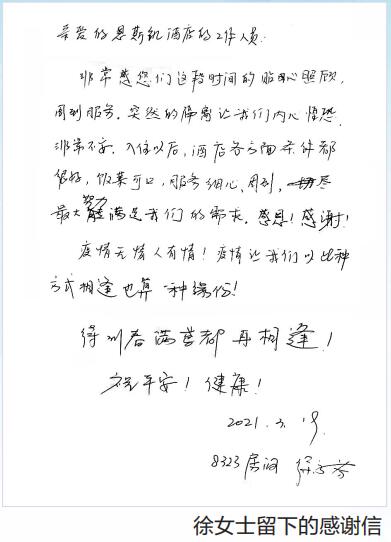 亲爱的恩斯凯酒店的工作人员:
非常感恩您们这段时间的贴心照顾,
周到服务。突然的隔离让我们内心惶恐,
非常不安。入住以后,酒店各方面条件都
很好,饭菜可口,服务细心、周到,尽
最大努力满足我们的需求。感恩!感谢!
疫情无情人有情!疫情让我们以此种
方式相逢也算一种缘份!
待到春满蓉都再相逢!
祝平安!健康!
2021.3.19.
8323房间
徐女士留下的感谢信